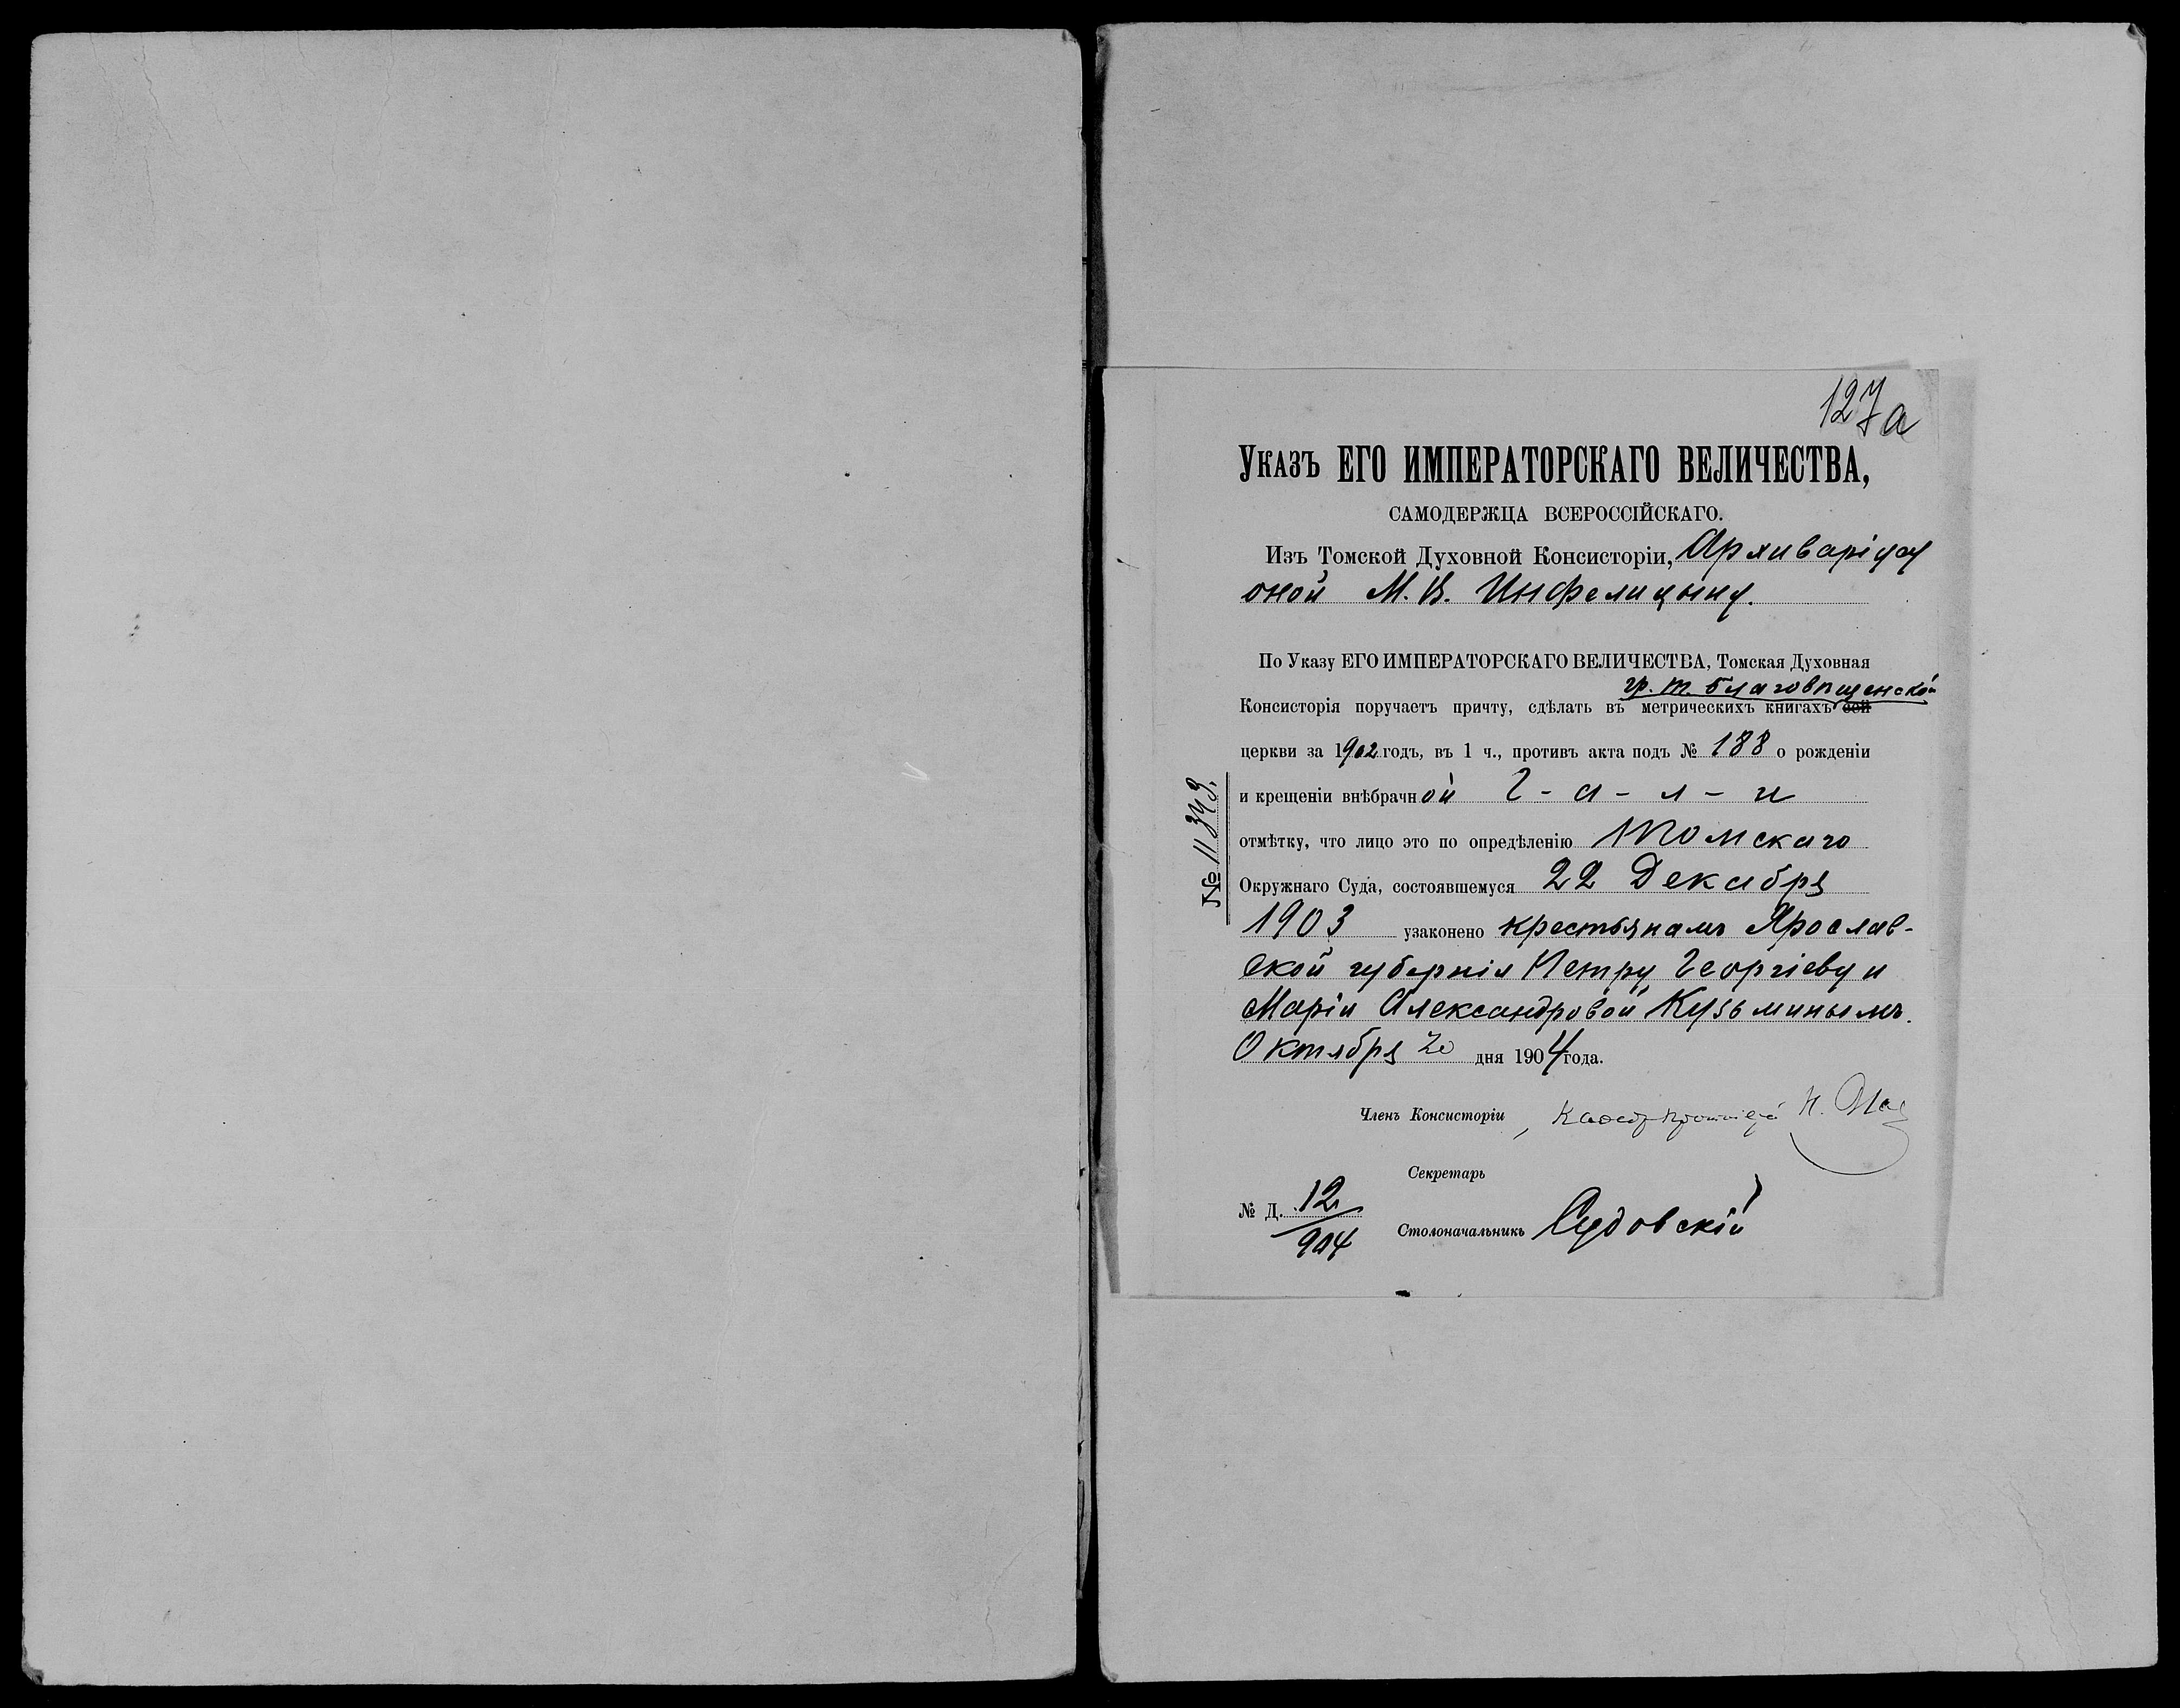 127а
Указъ ЕГО ИМПЕРАТОРСКАГО ВЕЛИЧЕСТВА,
САМОДЕРЖЦА ВСЕРОССІЙСКАГО.
Изъ Томской Духовной Консисторіи, Архиваріусу
оной М. В. Инфелицыну.
По Указу ЕГО ИМПЕРАТОРСКАГО ВЕЛИЧЕСТВА, Томская Духовная
гр. Т. Благовѣщенской
Консисторія поручаетъ причту, сдѣлать въ метрическихъ книгахъ сей
церкви за 1902 годъ, въ 1 ч., противъ акта подъ № 188 о рожденіи
и крещеніи внѣбрачной Г - а - л - и
отмѣтку, что лицо это по опредѣленію Томскаго
Окружнаго Суда, состоявшемуся 22 Декабря
1903 узаконено крестьянамъ Ярослав-
ской губерніи Петру Георгіеву и
Маріи Александровой Кузьминымъ.
Октября 20 дня 1904 года.
№ 11349.
Членъ Консисторіи, Каѳедр. Протоіерей Н.
Секретарь
№ Д. 12/904
Столоначальникъ Судовскій